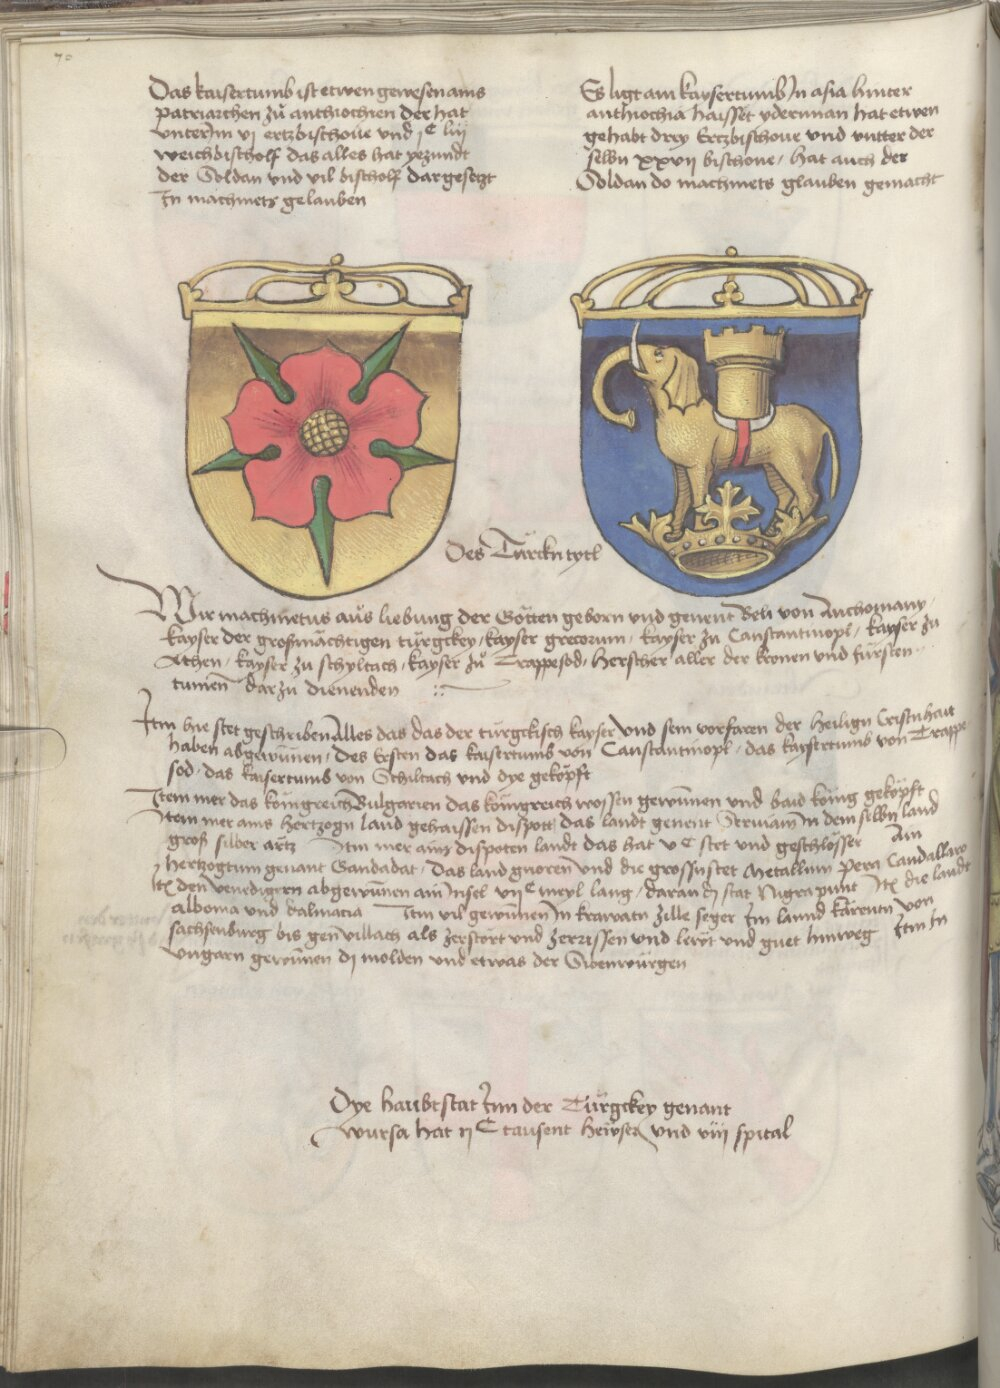 70
Das kaisertumb ist etwen gewesen ains
patriarchen zu anthiochien der hat
unter Im vj ertzbischove und jC liij
weichbischolf das alles hat yezundt
der Soldan und vil bischolf dargesetzt
In machmetz gelauben
Es ligt ain kaysertumb In asia hinter
anthiochia haisset yderman hat etwen
gehabt drey Ertzbischove und untter der
selbn xxvij bischove / hat auch der
Soldan do machmets glauben gemacht
Des Türckn tytl
Wir machmetus aus liebung der Götten geborn und genent Beli von Anchomany /
kayser der großmächtigen türgckey / kayser grecorum / kayser zu Constantinopl / kayser zu
Athen / kayser zu schyltach / kayser zu Trappesod / Herscher aller der kronen und fürsten
tumen dar zu dienenden
Itm hie stet geschriben Alles das das der türgckisch kayser und sein vorfaren der heilign Cristnhait
haben abgewunnen / Des Ersten das kaisertumb von Constantinopl / das kaysertumb von Trappe
sod / das kaisertumb von Schiltach und dye geköpft
Item mer das königreich Bulgarien das königreich wossen gewunnen und baid könig geköpft
Item mer ains Hertzogn land gehaissen dispott das landt genent Serviam In dem selbn land
groß silber ärtz Itm mer ains dispoten landt das hat vC stet und geschlösser Ain
hertzogtum genant Gandadat / Das land gnoren und die grossustet Metallum pera Candallaro
Itm den venedigern abgewunnen ain Insel vijC meyl lang / daran dj stat Nigrapunt Itm die landt
albonia und dalmacia Itm vil gewunnen In krawatn zille seger Im lannd kärentn von
sachsenburg bis gen villach als zerstört und zerrissen und lewt und guet hinweg Itm In
Ungarn gewunnen dj molden und etwas der Sibenwürgen
Dye haubtstat Inn der Türgckey genant
wursa hat ijC tausent Hewser und viij spital